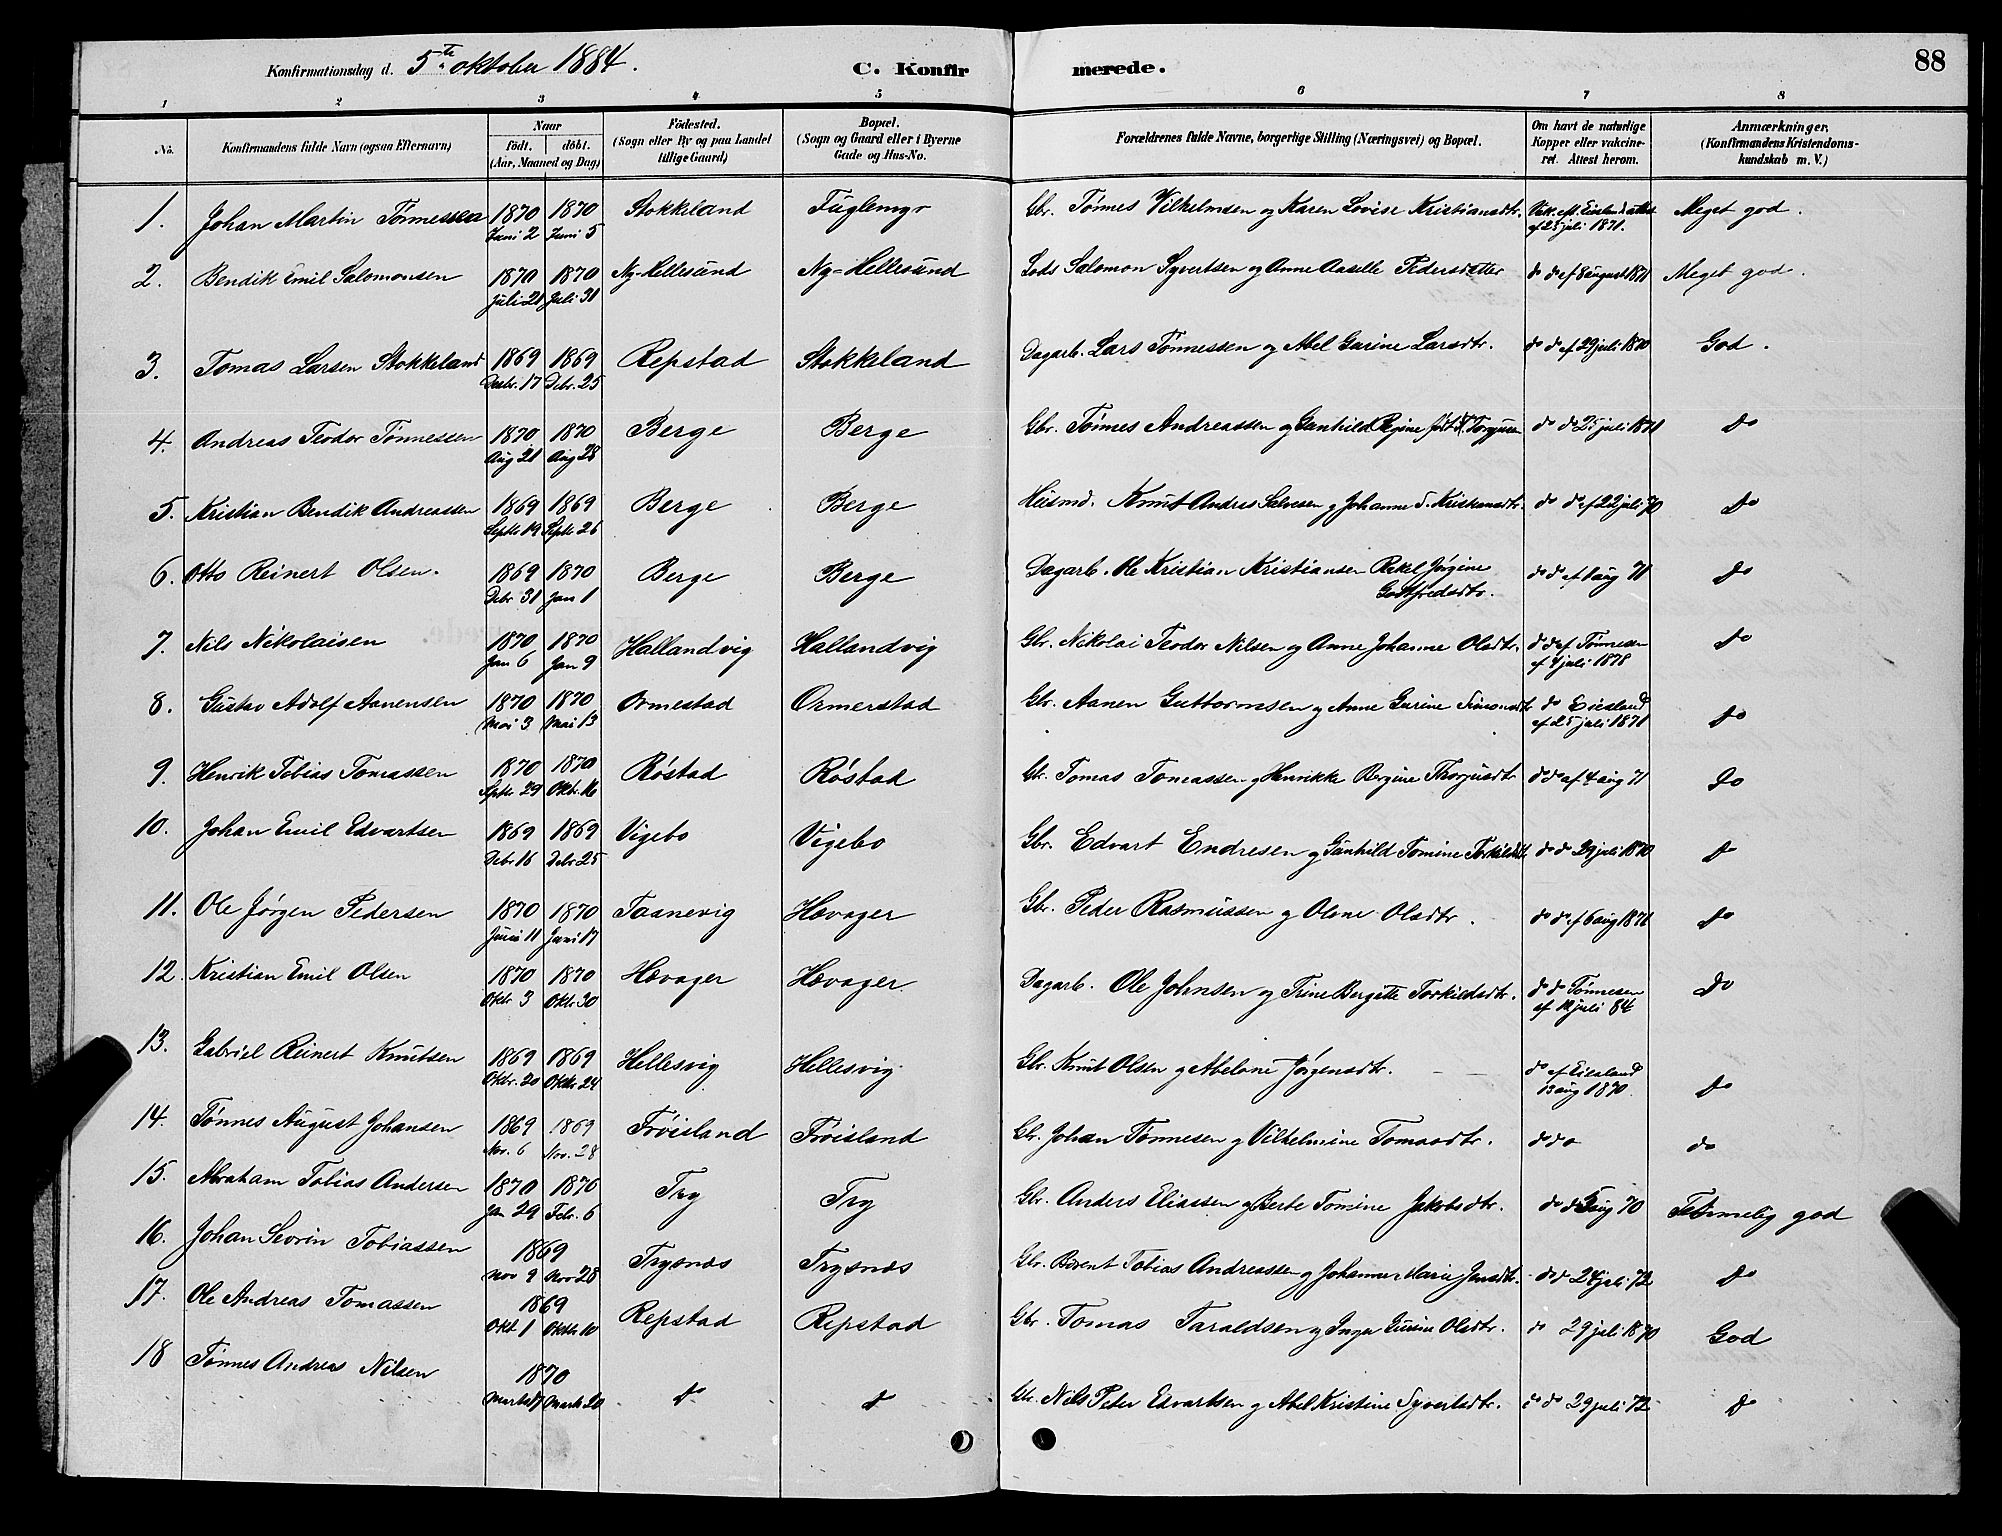 Konfirmationsdag d. 5te oktober 1884. C. Konfirmerede. 88
1 2 3 4 5 6 7 8
No. Konfirmandens fulde Navn (ogsaa Efternavn) Naar födt. döbt. (Aar, Maaned og Dag) Födested. (Sogn eller By og paa Landet tillige Gaard) Bopæl. (Sogn og Gaard eller i Byerne Gade og Hus-No. Forældrenes fulde Navne, borgerlige Stilling (Næringsvei) og Bopæl. Om havt de naturlige Kopper eller vakcineret. Attest herom. Anmærkninger. (Konfirmandens Kristendomskundskab m. V.)
1. Johan Martin Tønnessen 1870 Juni 2 1870 Juni 5 Stokkeland Fuglemyr Gbr. Tønnes Vilhelmsen og Karen Lovise Kristiansdtr. af 25 juli 1871. Meget god.
2. Bendik Emil Salomonsen 1870 Juli 21 1870 Juli 31 Ny-Hellesund Ny-Hellesund Lods Salomon Syvertsen og Anne Aaselle Pedersdatter do do af 8 august 1871 Meget god.
3. Tomas Larsen Stokkeland 1869 Decbr. 17 1869 Debr. 25 Repstad Stokkeland Dagarb. Lars Tønnessen og Abel Gurine Larsdtr. do do af 29 juli 1870 God.
4. Andreas Teodor Tønnessen 1870 Aug 21 1870 Aug 28 Berge Berge Gbr. Tønnes Andreassen og Gunhild Regine født do do 25 juli 1871 do
5. Kristian Bendik Andreassen 1869 Septbr 19 1869 Septbr 26 Berge Berge Husmd. Knut Andres Salvesen og Johanne S. Kristensdtr. do do af 22 juli 70 Do
6. Otto Reinert Olsen. 1869 Debr 31 1870 Jan 1 Berge Berge Dagarb. Ole Kristian Kristiansen Rakel Jørgine Gottfredsdtr. do do af 1 aug 71 do
7. Nils Nikolaisen 1870 Jan 6 1870 Jan 9 Hallandvig Hallandvig Gbr. Nikolai Teodor Nilsen og Anne Johanne Olsdtr. do do af Tønnesen af 4 juli 1878 do
8. Gustav Adolf Aanensen 1870 Mai 3 1870 Mai 13 Ormestad Ormerstad Gbr. Aanen Guttormsen og Anne Gurine Simonsdtr do do Eiesland af 25 juli 1871 do
9. Henrik Tobias Tomassen 1870 Sptbr 29 1870 Oktbr. 16 Røstad Røstad Gbr. Tomas Tomassen og Henrikke Bergine Thorjusdtr do do af 4 aug 71 Do
10. Johan Emil Edvartsen 1869 Debr 16 1869 Debr 25 Vigebo Vigebo Gbr. Edvart Endresen og Gunhild Tomine Torkildsdtr do do 29 juli 1870 do
11. Ole Jørgen Pedersen 1870 Juni 11 1870 Juni 17 Taanevig Hævager Gbr. Peder Rasmussen og Olene Olsdtr. do do af 6 aug 1876 do
12. Kristian Emil Olsen 1870 Oktbr. 3 1870 Oktbr. 30 Hævager Hævager Dagarb. Ole Johnsen og Trine Bergitte Torkildsdtr. do do Tønnesen af 12 juli 84 Do
13. Gabriel Reinert Knutsen 1869 Oktbr. 20 1869 Oktbr. 24 Hellesvig Hellesvig Gbr. Knut Olsen og Abelone Jørgensdtr. do af Eiesland 13 aug 1870 do
14. Tønnes August Johansen 1869 Nov. 6 1869 Nov. 28 Frøisland Frøisland Gbr. Johan Tønnesen og Vilhelmine Tomasdtr. do do do
15. Abraham Tobias Andersen 1870 Jan 29 1870 Febr. 6 Try Try Gbr. Anders Eliassen og Berte Tomine Jakobsdtr. do do 5 aug 70 Temmelig god
16. Johan Sevrin Tobiassen 1869 Nov 9 Nov 28 Trysnæs Trysnæs Gbr. Berent Tobias Andreassen og Johanne Marie Jensdtr. do do 24 juli 72 do
17. Ole Andreas Tomassen 1869 Okt 1 Oktbr 10 Repstad Repstad Gbr. Tomas Taraldsen og Inger Gurine Olsdtr. do 29 juli 1870 God
18 Tønnes Andreas Nilsen 1870 Marts 17 Marts 20 do do Gbr. Nils Peter Edvartsen og Abel Kristine Syvertsdtr. do do 29 juli 72 do